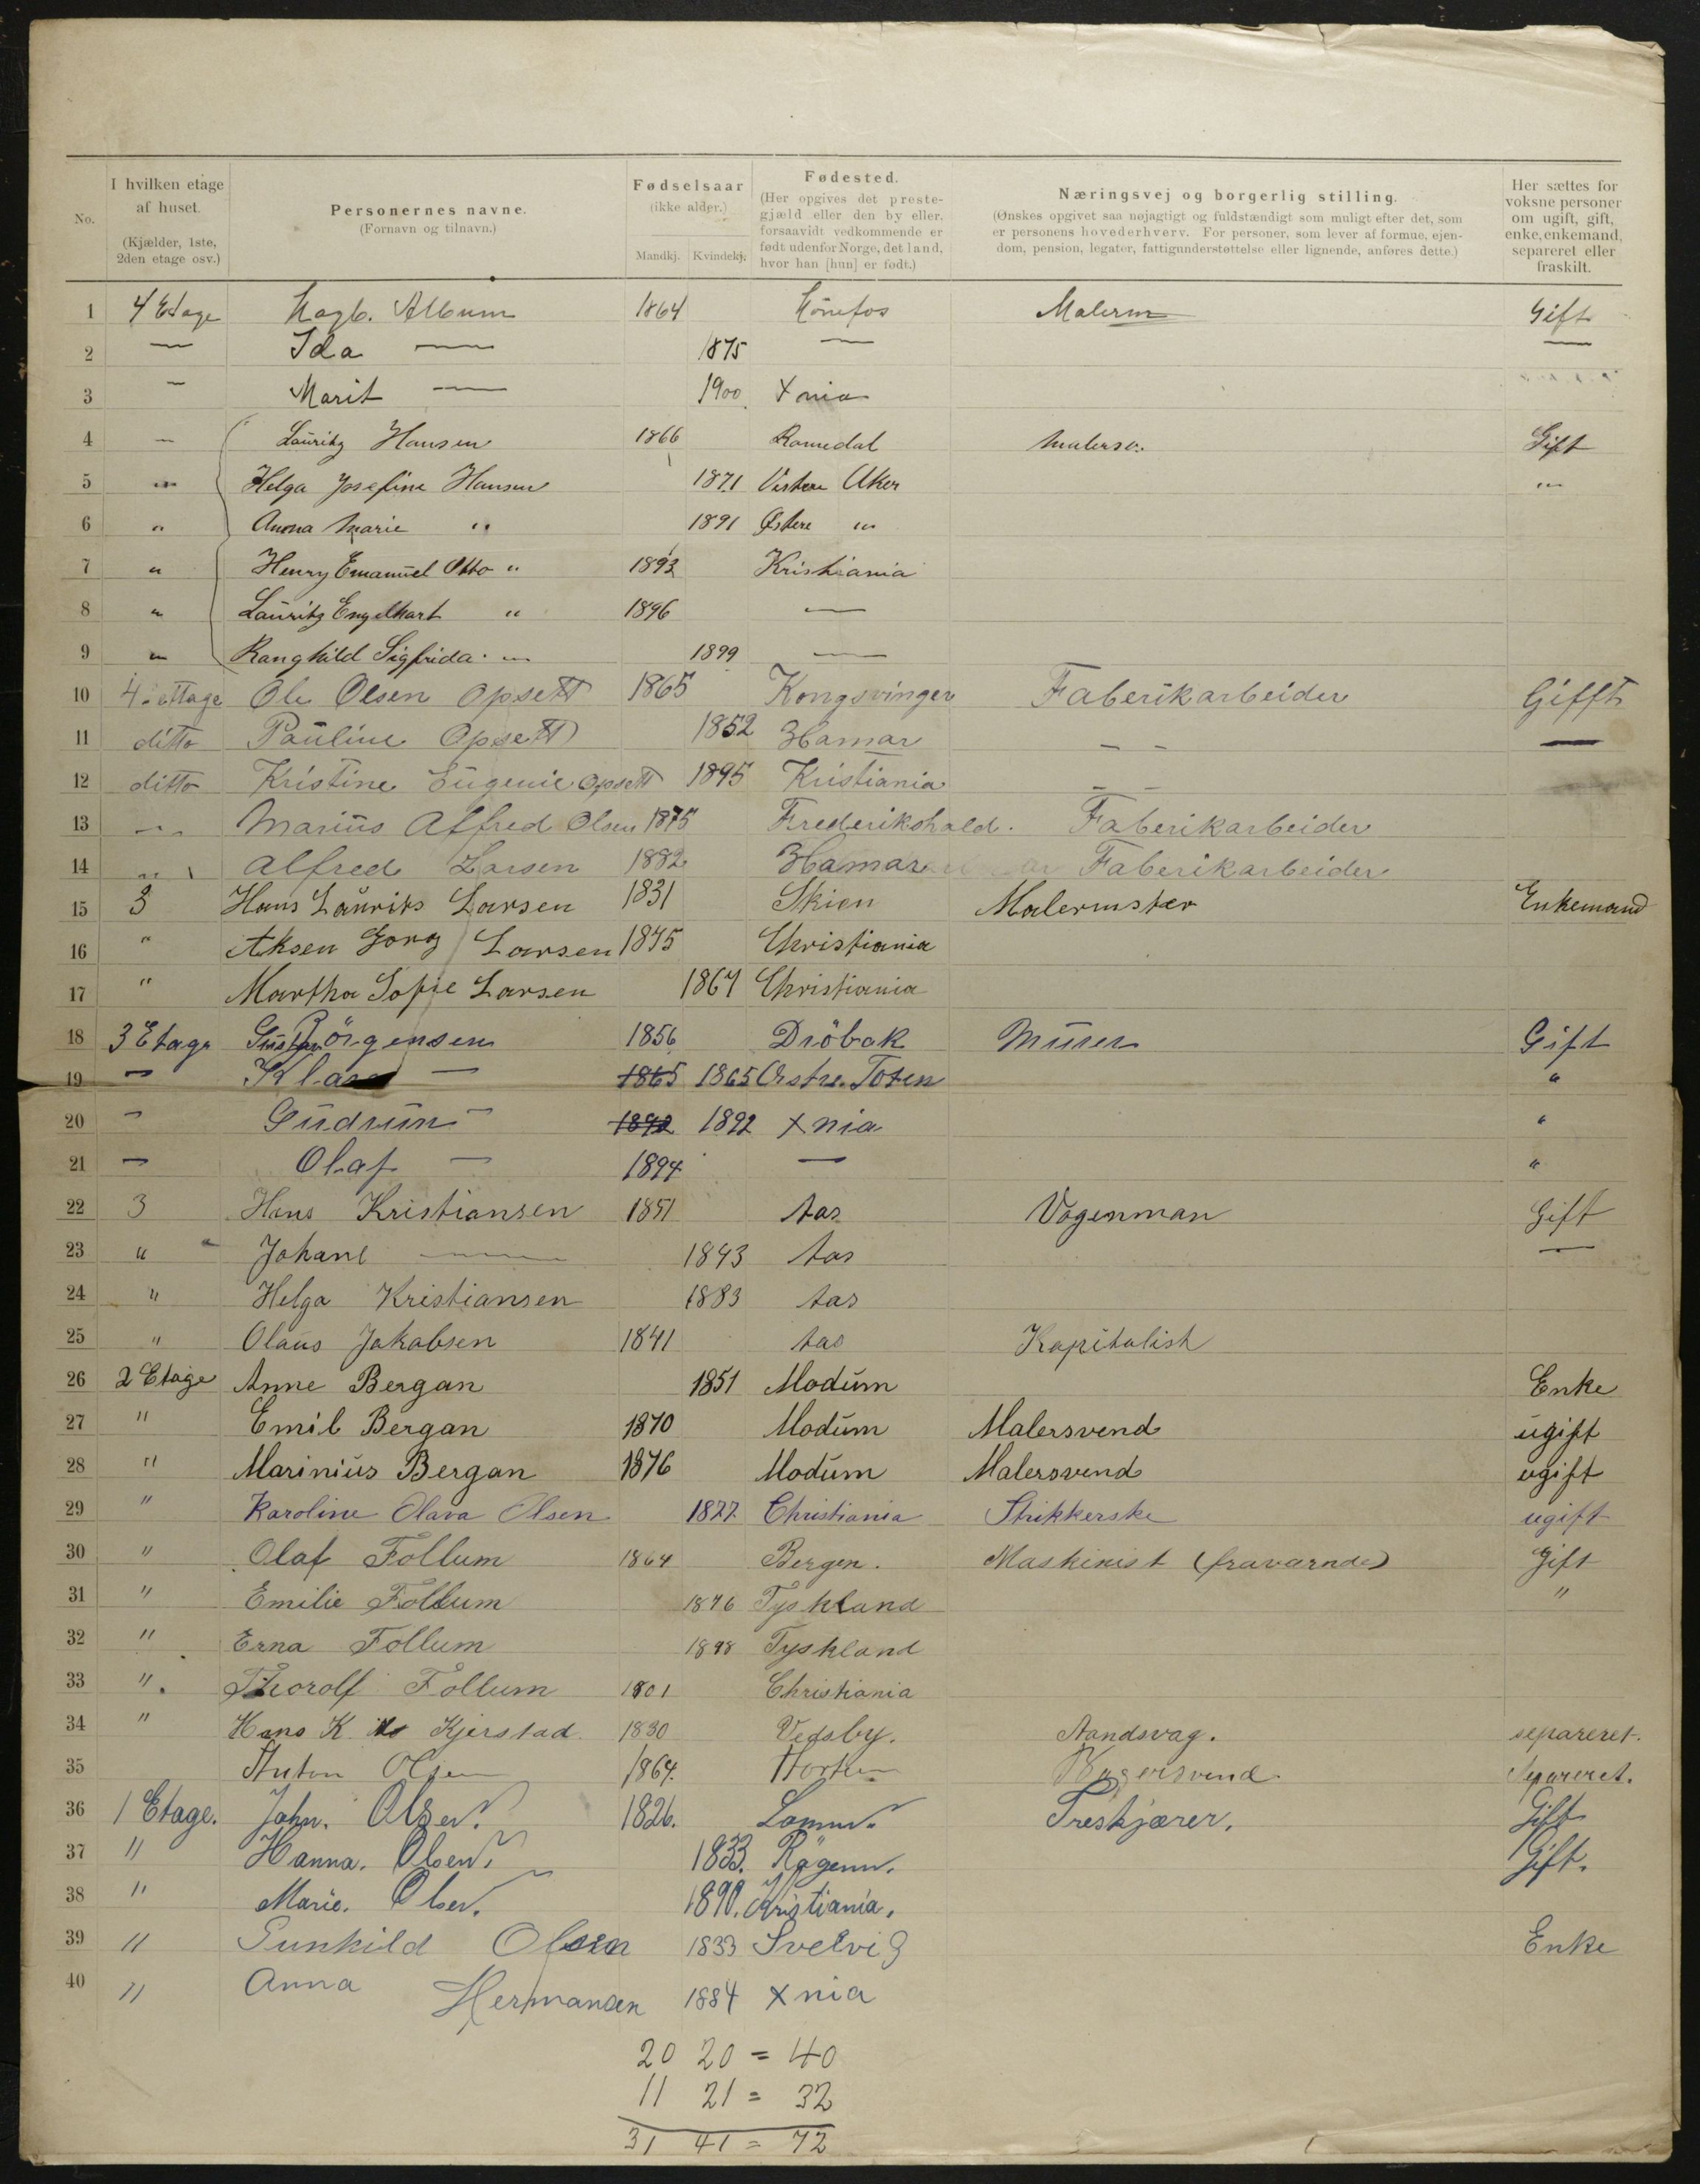 No.
I hvilken etage af huset. (Kjælder, 1ste, 2den etage osv.)
Personernes navne. (Fornavn og tilnavn.)
Fødselsaar (ikke alder.) Mandkj. Kvindekj.
Fødested. (Her opgives det prestegjæld eller den by eller, forsaavidt vedkommende er født udenfor Norge, det land, hvor han [hun] er født.)
Næringsvej og borgerlig stilling. (Ønskes opgivet saa nøjagtigt og fuldstændigt som muligt efter det, som er personens hovederhverv. For personer, som lever af formue, ejendom, pension, legater, fattigunderstøttelse eller lignende, anføres dette.)
Her sættes for voksne personer om ugift, gift, enke, enkemand, separeret eller fraskilt.
1 4 Etage Album 1864 Hönefos Malerm Gift
2 — Ida — 1875 — —
3 — Marit — 1900 Xnia
4 — Lauritz Hansen 1866 Romedal Malersv. Gift
5 „ Helga Josefine Hansen 1871 Vestere Aker „
6 „ Anna Marie „ 1891 Østere „
7 „ Henry Emanuel Otto „ 1893 Kristiania
8 „ Lauritz Engelhart „ 1896 —
9 „ Ranghild Sigfrida „ 1899 —
10 4. ettage Ole Olsen Opsett 1865 Kongsvinger Faberikarbeider Gifft
11 ditto Pauline Opsett 1852 Hamar — — —
12 ditto Kristine Eugenie Opsett 1895 Kristiania — —
13 „ Marius Alfred Olsen 1875 Frederikshald. Faberikarbeider
14 „ Alfred Larsen 1882 Hamar Faberikarbeider
15 3 Hans Laurits Larsen 1831 Skien Malermster Enkemand
16 " Aksen Georg Larsen 1875 Christiania
17 " Martha Sofie Larsen 1867 Christiania
18 3 Etage Gustav Jörgensen 1856 Dröbak Murer Gift
19 — Klara — 1865 1865 Östre. Toten "
20 — Gudrun — 1892 1892 Xnia "
21 — Olaf — 1894 — "
22 3 Hans Kristiansen 1851 Aas Vogenman Gift
23 " Johane — 1843 Aas —
24 " Helga Kristiansen 1883 Aas
25 " Olaus Jakobsen 1841 Aas Kapitalist
26 2 Etage Anne Bergan 1851 Modum Enke
27 " Emil Bergan 1870 Modum Malersvend ugift
28 " Marinius Bergan 1876 Modum Malersvend ugift
29 " Karoline Olava Olsen 1877 Christiania Strikkerske ugift
30 " Olaf Follum 1864 Bergen. Maskinist (fraværnde) Gift
31 " Emilie Follum 1876 Tyskland "
32 " Erna Follum 1898 Tyskland
33 ". Thorolf Follum 1901 Christiania
34 " Hans K. Kjerstad 1830 Vegsby. Aandsvag. separeret.
35 Anton Olsen 1864. Horten Separeret.
36 1 Etage. John. Olsen. 1826. Treskjærer. Gift
37 " Hanna. Olsen. 1833. Gift.
38 " Marie. Olsen. 1890. Kristiania.
39 " Gunhild Olsen 1833 Svelvig Enke
40 " Anna Hermansen 1884 Xnia
20 20 = 40
11 21 = 32
31 41 = 72